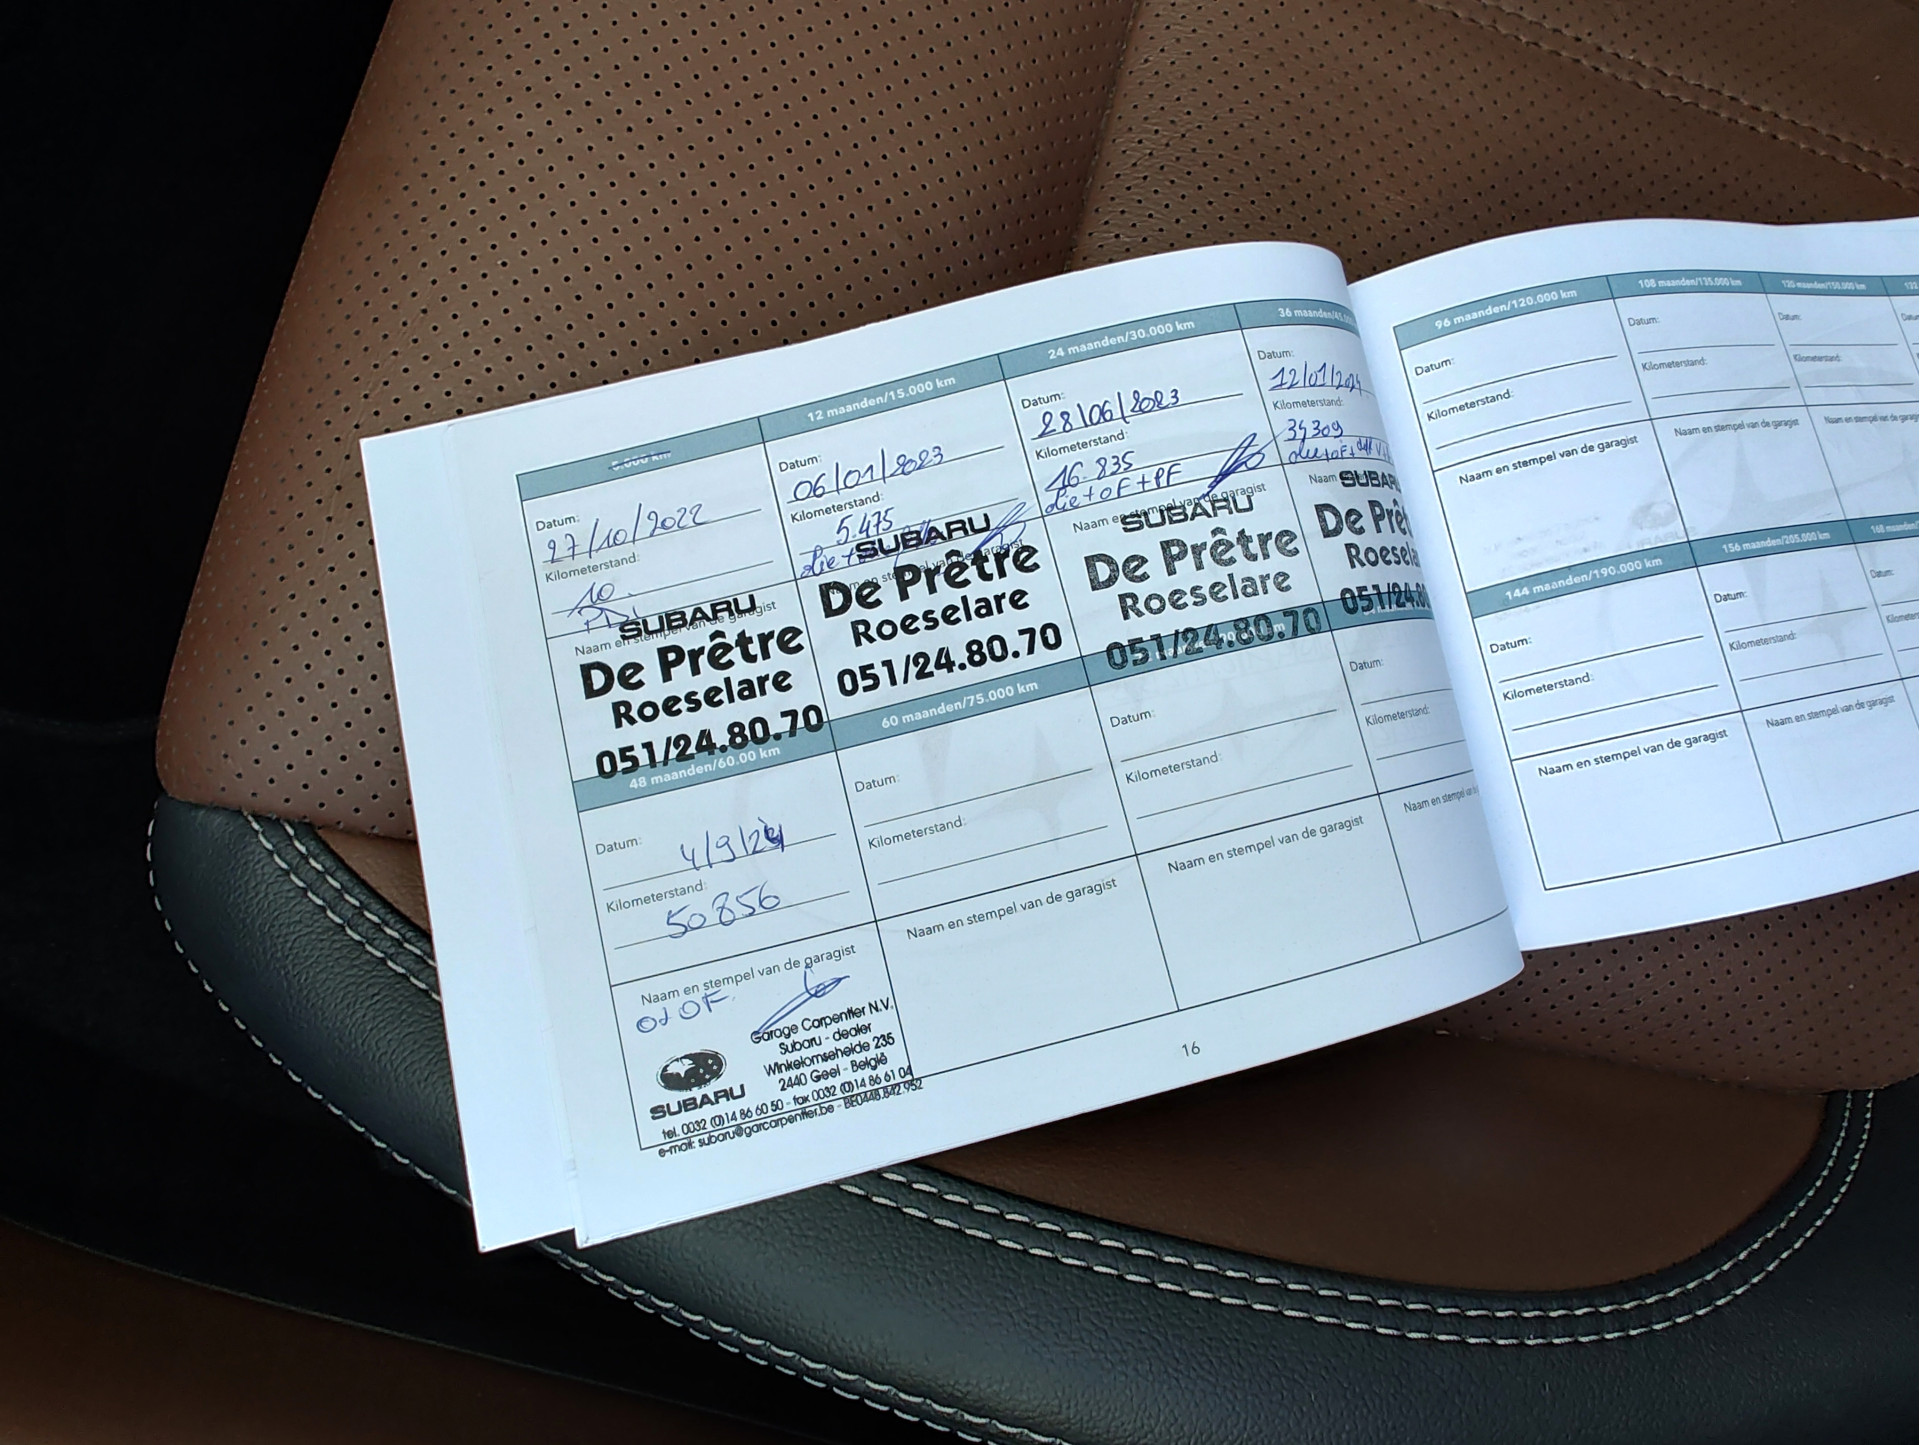 5.000 km
Datum:
27/10/2022
Kilometerstand:
10
Naam en stempel van de garagist
SUBARU
De Prêtre
Roeselare
051/24.80.70
12 maanden/15.000 km
Datum:
06/01/2023
Kilometerstand:
5.475
SUBARU
De Prêtre
Roeselare
051/24.80.70
24 maanden/30.000 km
Datum:
28/06/2023
Kilometerstand:
16.835
olie + OF + PF
Naam en stempel van de garagist
SUBARU
De Prêtre
Roeselare
051/24.80.70
36 maanden/45
Datum:
12/01/2024
Kilometerstand:
olie+OF+
Naam
SUBAR
De Prêt
Roesela
051/24.8
48 maanden/60.00 km
Datum:
4/9/24
Kilometerstand:
50856
Naam en stempel van de garagist
Garage Carpentier N.V.
Subaru - dealer
Winkelomseheide 235
2440 Geel - België
SUBARU
tel. 0032 (0)14 86 60 50 - fax 0032 (0)14 86 61 04
e-mail: subaru@garcarpentier.be - BE0448.842.952
60 maanden/75.000 km
Datum:
Kilometerstand:
Naam en stempel van de garagist
Datum:
Kilometerstand:
Naam en stempel van de garagist
Datum:
Kilometerstand:
Naam en stempel
16
96 maanden/120.000 km
Datum:
Kilometerstand:
Naam en stempel van de garagist
108 maanden/135.000 km
Datum:
Kilometerstand:
Naam en stempel van de garagist
120 maanden/150.000 km
Datum:
Kilometerstand:
Naam en stempel van de garagist
132
144 maanden/190.000 km
Datum:
Kilometerstand:
Naam en stempel van de garagist
156 maanden/205.000 km
Datum:
Kilometerstand:
Naam en stempel van de garagist
168 maanden
Datum: